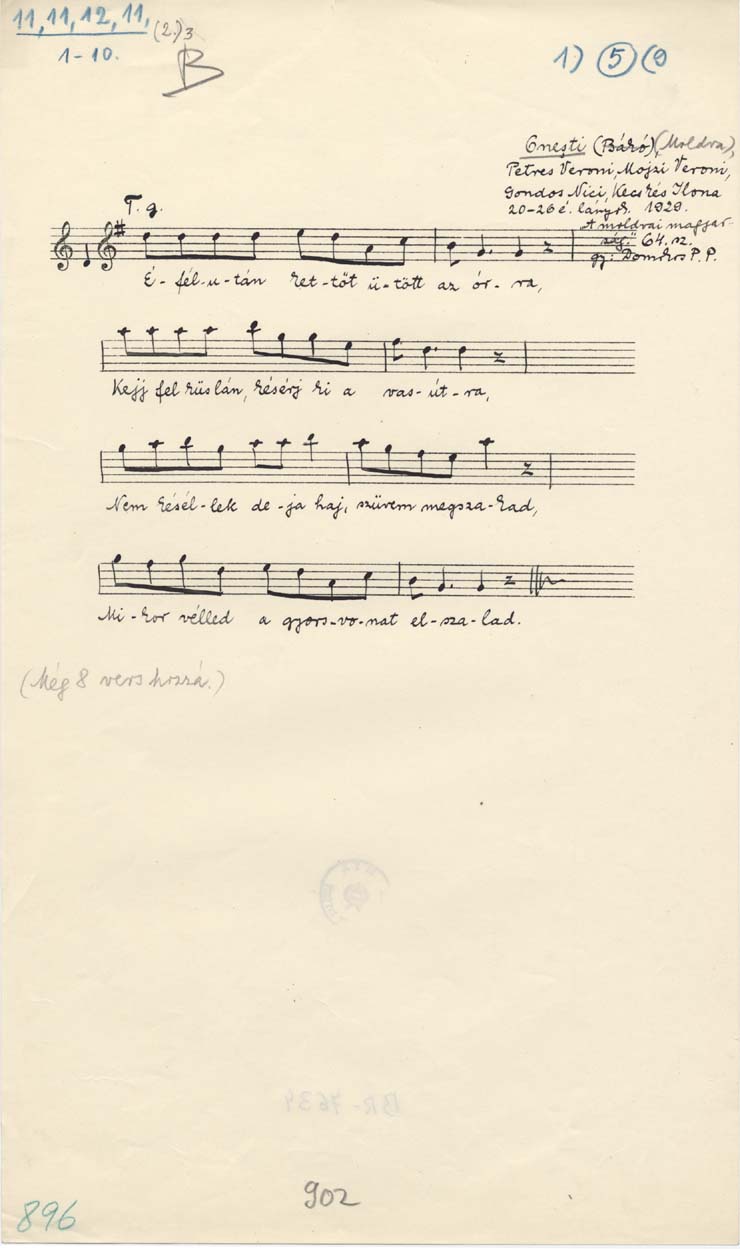 11, 11, 12, 11, (2.)3
1-10.
B
1) 5 (9
Onești (Bákó) (Moldva),
Petres Veroni, Mojzi Veroni,
Gondos Nici, Kecskés Ilona
20-26 é. lányok. 1929.
A moldvai magyar-
ság." 64. sz.
gy: Domokos P. P.
T. g.
É-fél-u-tán ket-tőt ü-tött az ór-ra,
Kejj fel küslán, késérj ki a vas-út-ra,
Nem késél-lek de-ja haj, szüvem megsza-kad,
Mi-kor vélled a gyors-vo-nat el-sza-lad.
(Még 8 vers hozzá.)
BR-7634
902
896